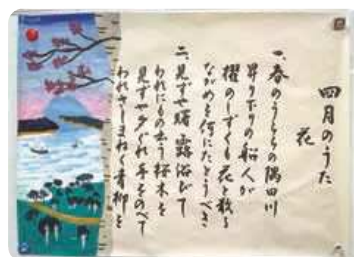 四月のうた
花
一、春のうららの隅田川
昇り下りの船人が
櫂のしずくも花と散る
ながめを何にたとうべき
二、見ずや曙露浴びて
われにもの云う桜木を
見ずや夕ぐれ手をのべて
われさしまねく青柳を